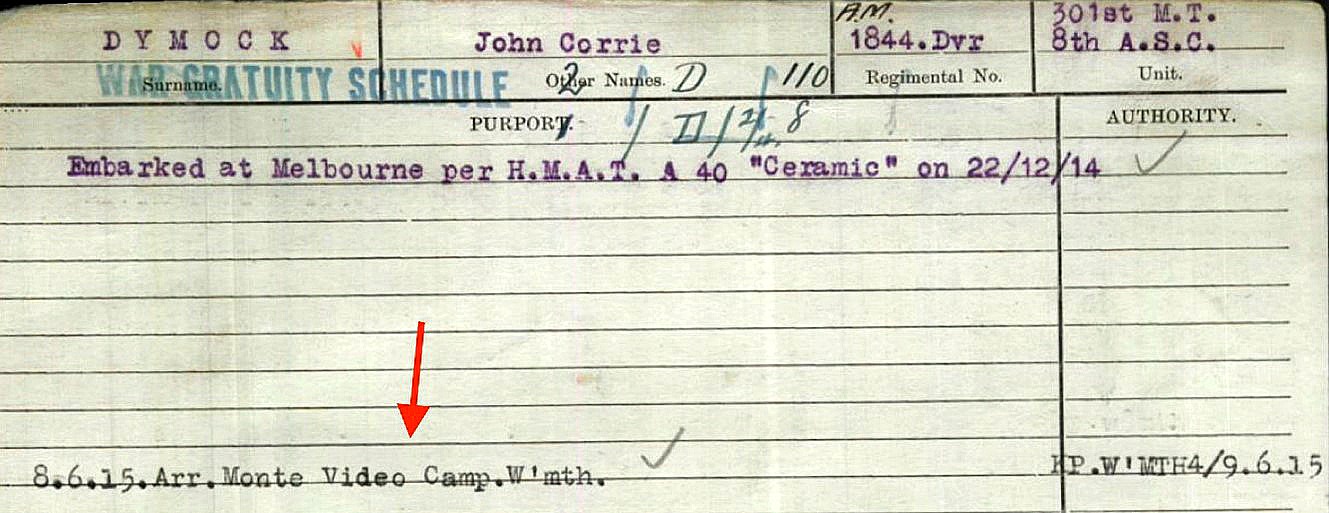 A.M. 301st M.T.
DYMOCK John Corrie 1844.Dvr 8th A.S.C.
WAR GRATUITY SCHEDULE
Surname. Other Names. D 110 Regimental No. Unit.
PURPORT. / II / 21 8 AUTHORITY.
Embarked at Melbourne per H.M.A.T. A 40 "Ceramic" on 22/12/14
8.6.15.Arr.Monte Video Camp.W'mth. P.W'MTH4/9.6.15